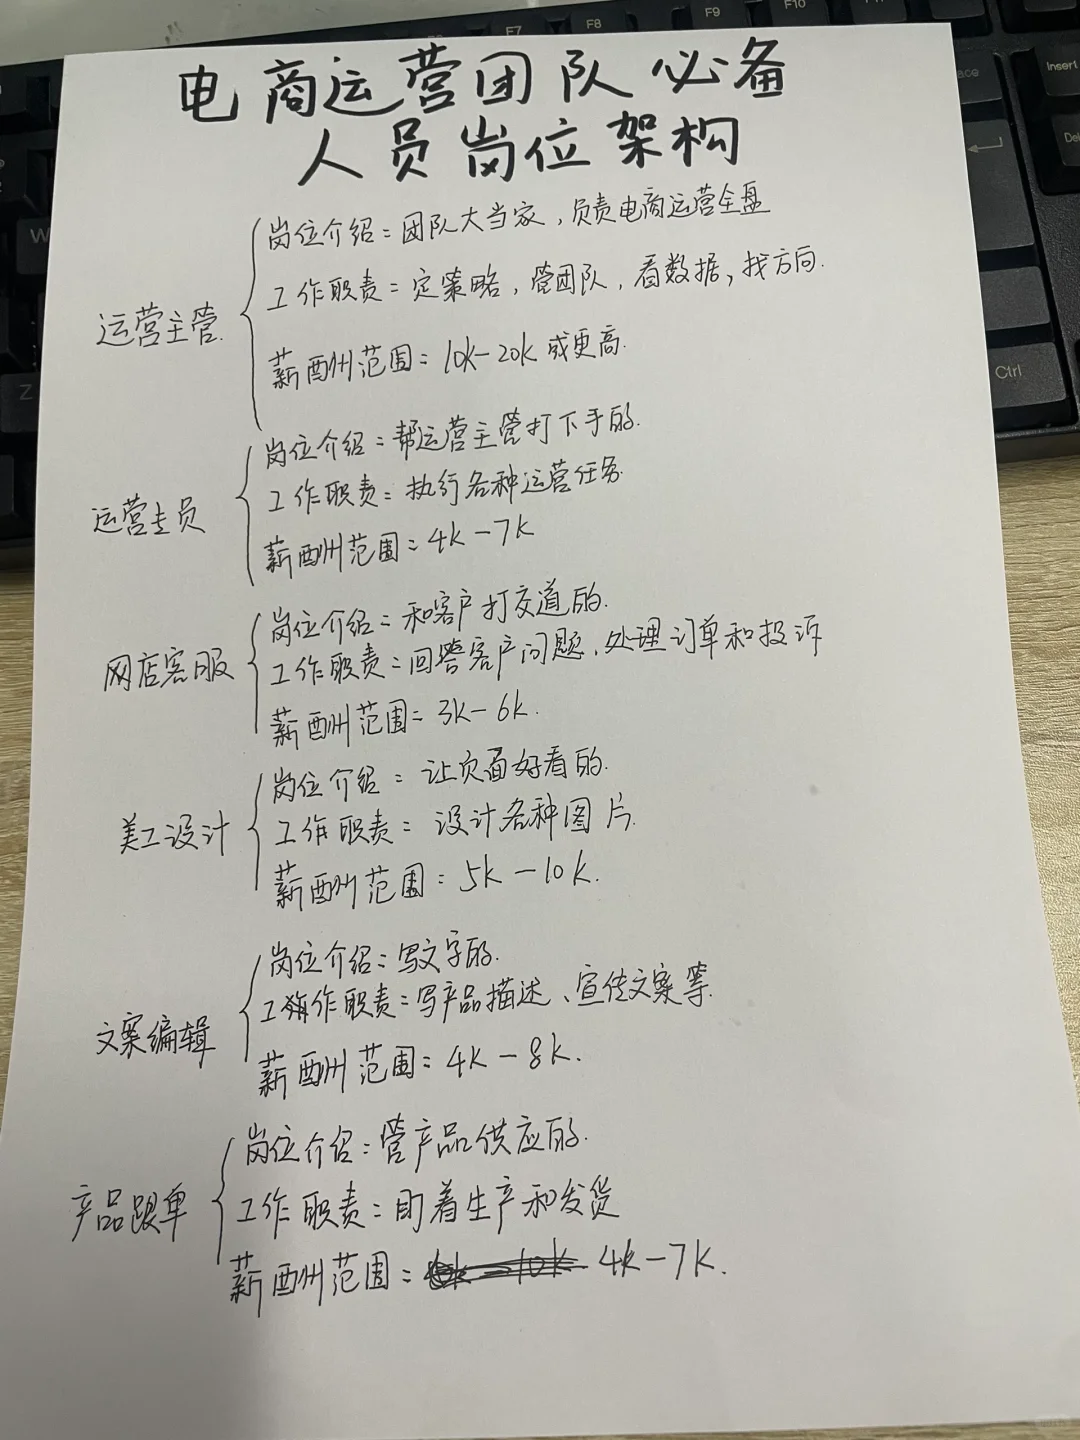 电商运营团队必备
人员岗位架构
运营主管
岗位介绍：团队大当家，负责电商运营全盘
工作职责：定策略，管团队，看数据，找方向.
薪酬州范围：10k-20k或更高.
运营专员
岗位介绍：帮运营主管打下手的.
工作职责：执行各种运营任务
薪酬州范围：4k-7k
网店客服
岗位介绍：和客户打交道的.
工作职责：回答客户问题、处理订单和投诉
薪酬州范围：3k-6k.
美工设计
岗位介绍：让页面好看的.
工作职责：设计各种图片.
薪酬州范围：5k-10k.
文案编辑
岗位介绍：写文字的.
工作职责：写产品描述、宣传文案等.
薪酬州范围：4k-8k.
产品跟单
岗位介绍：管产品供应的.
工作职责：盯着生产和发货
薪酬州范围：4k-7k.
F7
F8
F9
F10
Insert
W
Z
Ctrl